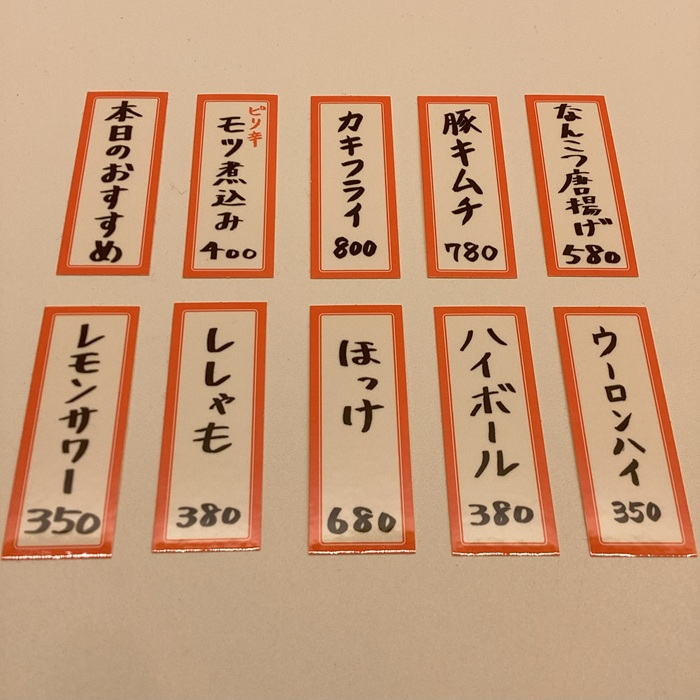 本日のおすすめ
ピリ辛
モツ煮込み
400
カキフライ
800
豚キムチ
780
なんこつ唐揚げ
580
レモンサワー
350
ししゃも
380
ほっけ
680
ハイボール
380
ウーロンハイ
350